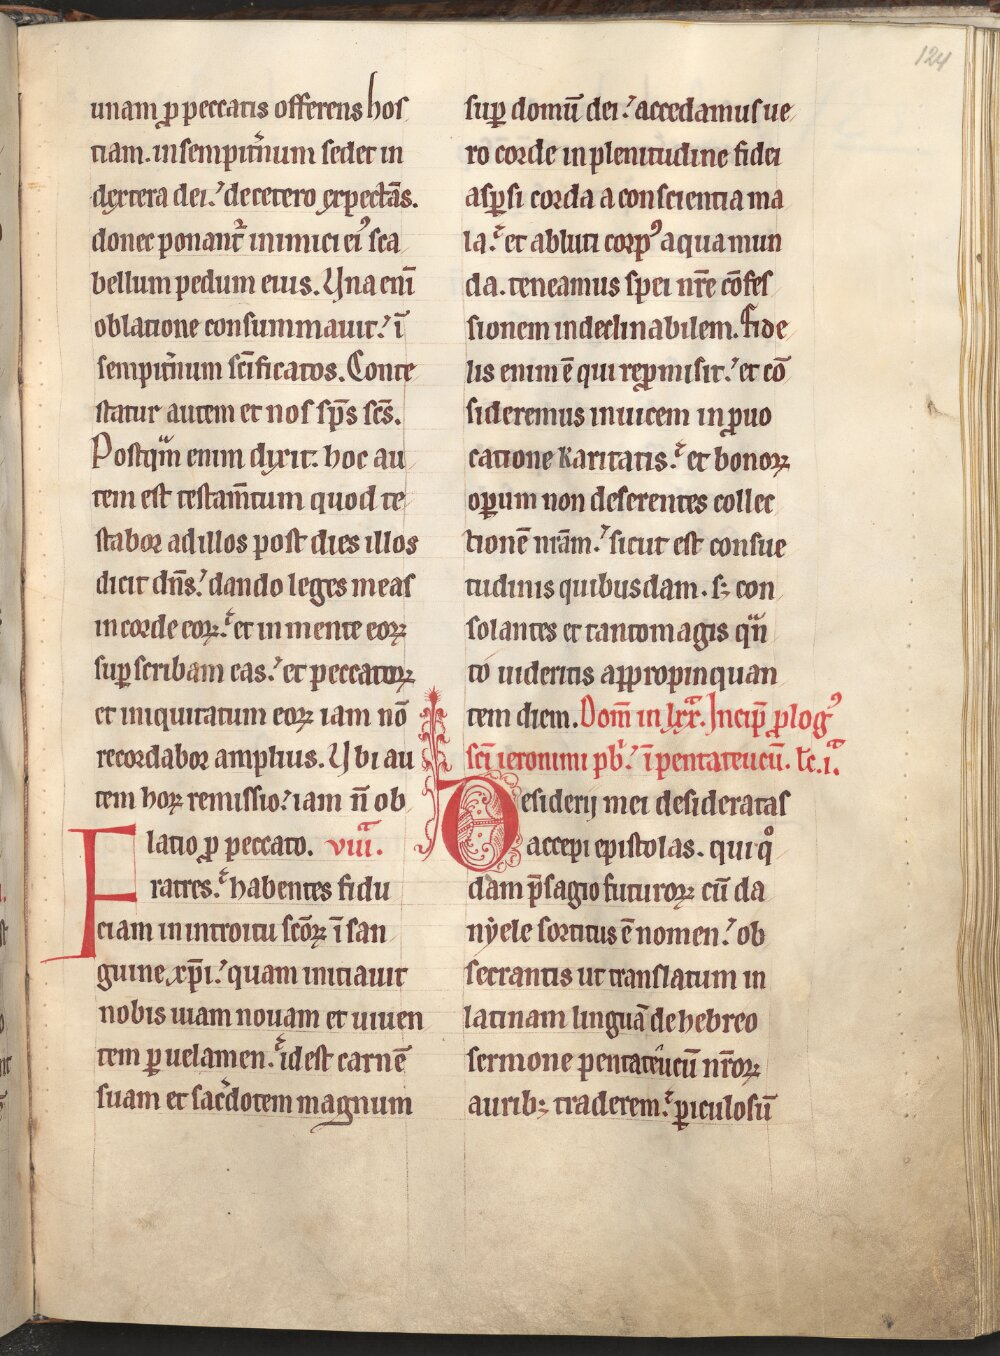 124
unam ꝓ peccatis offerens hos
tiam. in sempit̾num sedet in
dextera dei. de cetero expectās.
donec ponant᷑ inimici ei᷒ sca
bellum pedum eius. Una eni̅
oblatione consummauit. i̅
sempit̾num sc̅ificatos. Conte
statur autem et nos sp̅s sc̅s.
Postqᷓm enim dixit. hoc au
tem est testam̅tum quod te
stabor ad illos post dies illos
dicit dn̅s. dando leges meas
in corde eoꝝ. et in mente eoꝝ
suꝑscribam eas. et peccatoꝝ
et iniquitatum eoꝝ iam nō
recordabor amplius. Ubi au
tem hoꝝ remissio. iam n̅ ob
latio ꝓ peccato. viiii.ᵃ
Fratres. habentes fidu
ciam in introitu scōꝝ i̅ san
guine xp̅i. quam initiauit
nobis uiam nouam et uiuen
tem ꝑ uelamen. id est carnē
suam et sac̾dotem magnum
suꝑ domū dei. accedamus ue
ro corde in plenitudine fidei
asꝑsi corda a conscientia ma
la. et abluti corp᷒ aqua mun
da. teneamus spei nr̅e cōfes
sionem indeclinabilem. Fide
lis enim ē qui repromisit. et cō
sideremus inuicem in ꝓuo
catione karitatis. et bonoꝝ
oꝑum non deserentes collec
tionē nrām. sicut est consue
tudinis quibusdam. sꝫ con
solantes et tanto magis qᷓn
to uideritis appropinquan
tem diem. Dom̅ in lxx.ᵃ Incip̅ ꝓlog᷒
sc̅i ieronimi pb̅r. i̅ pentateucū. lc̅.i.ᵃ
Desiderij mei desideratas
accepi epistolas. qui qͦ
dam p̅sagio futuroꝝ cū da
nyele sortitus ē nomen. ob
secrantis ut translatum in
latinam linguā de hebreo
sermone pentateucū nr̅oꝝ
auribꝫ traderem. ꝑiculosū